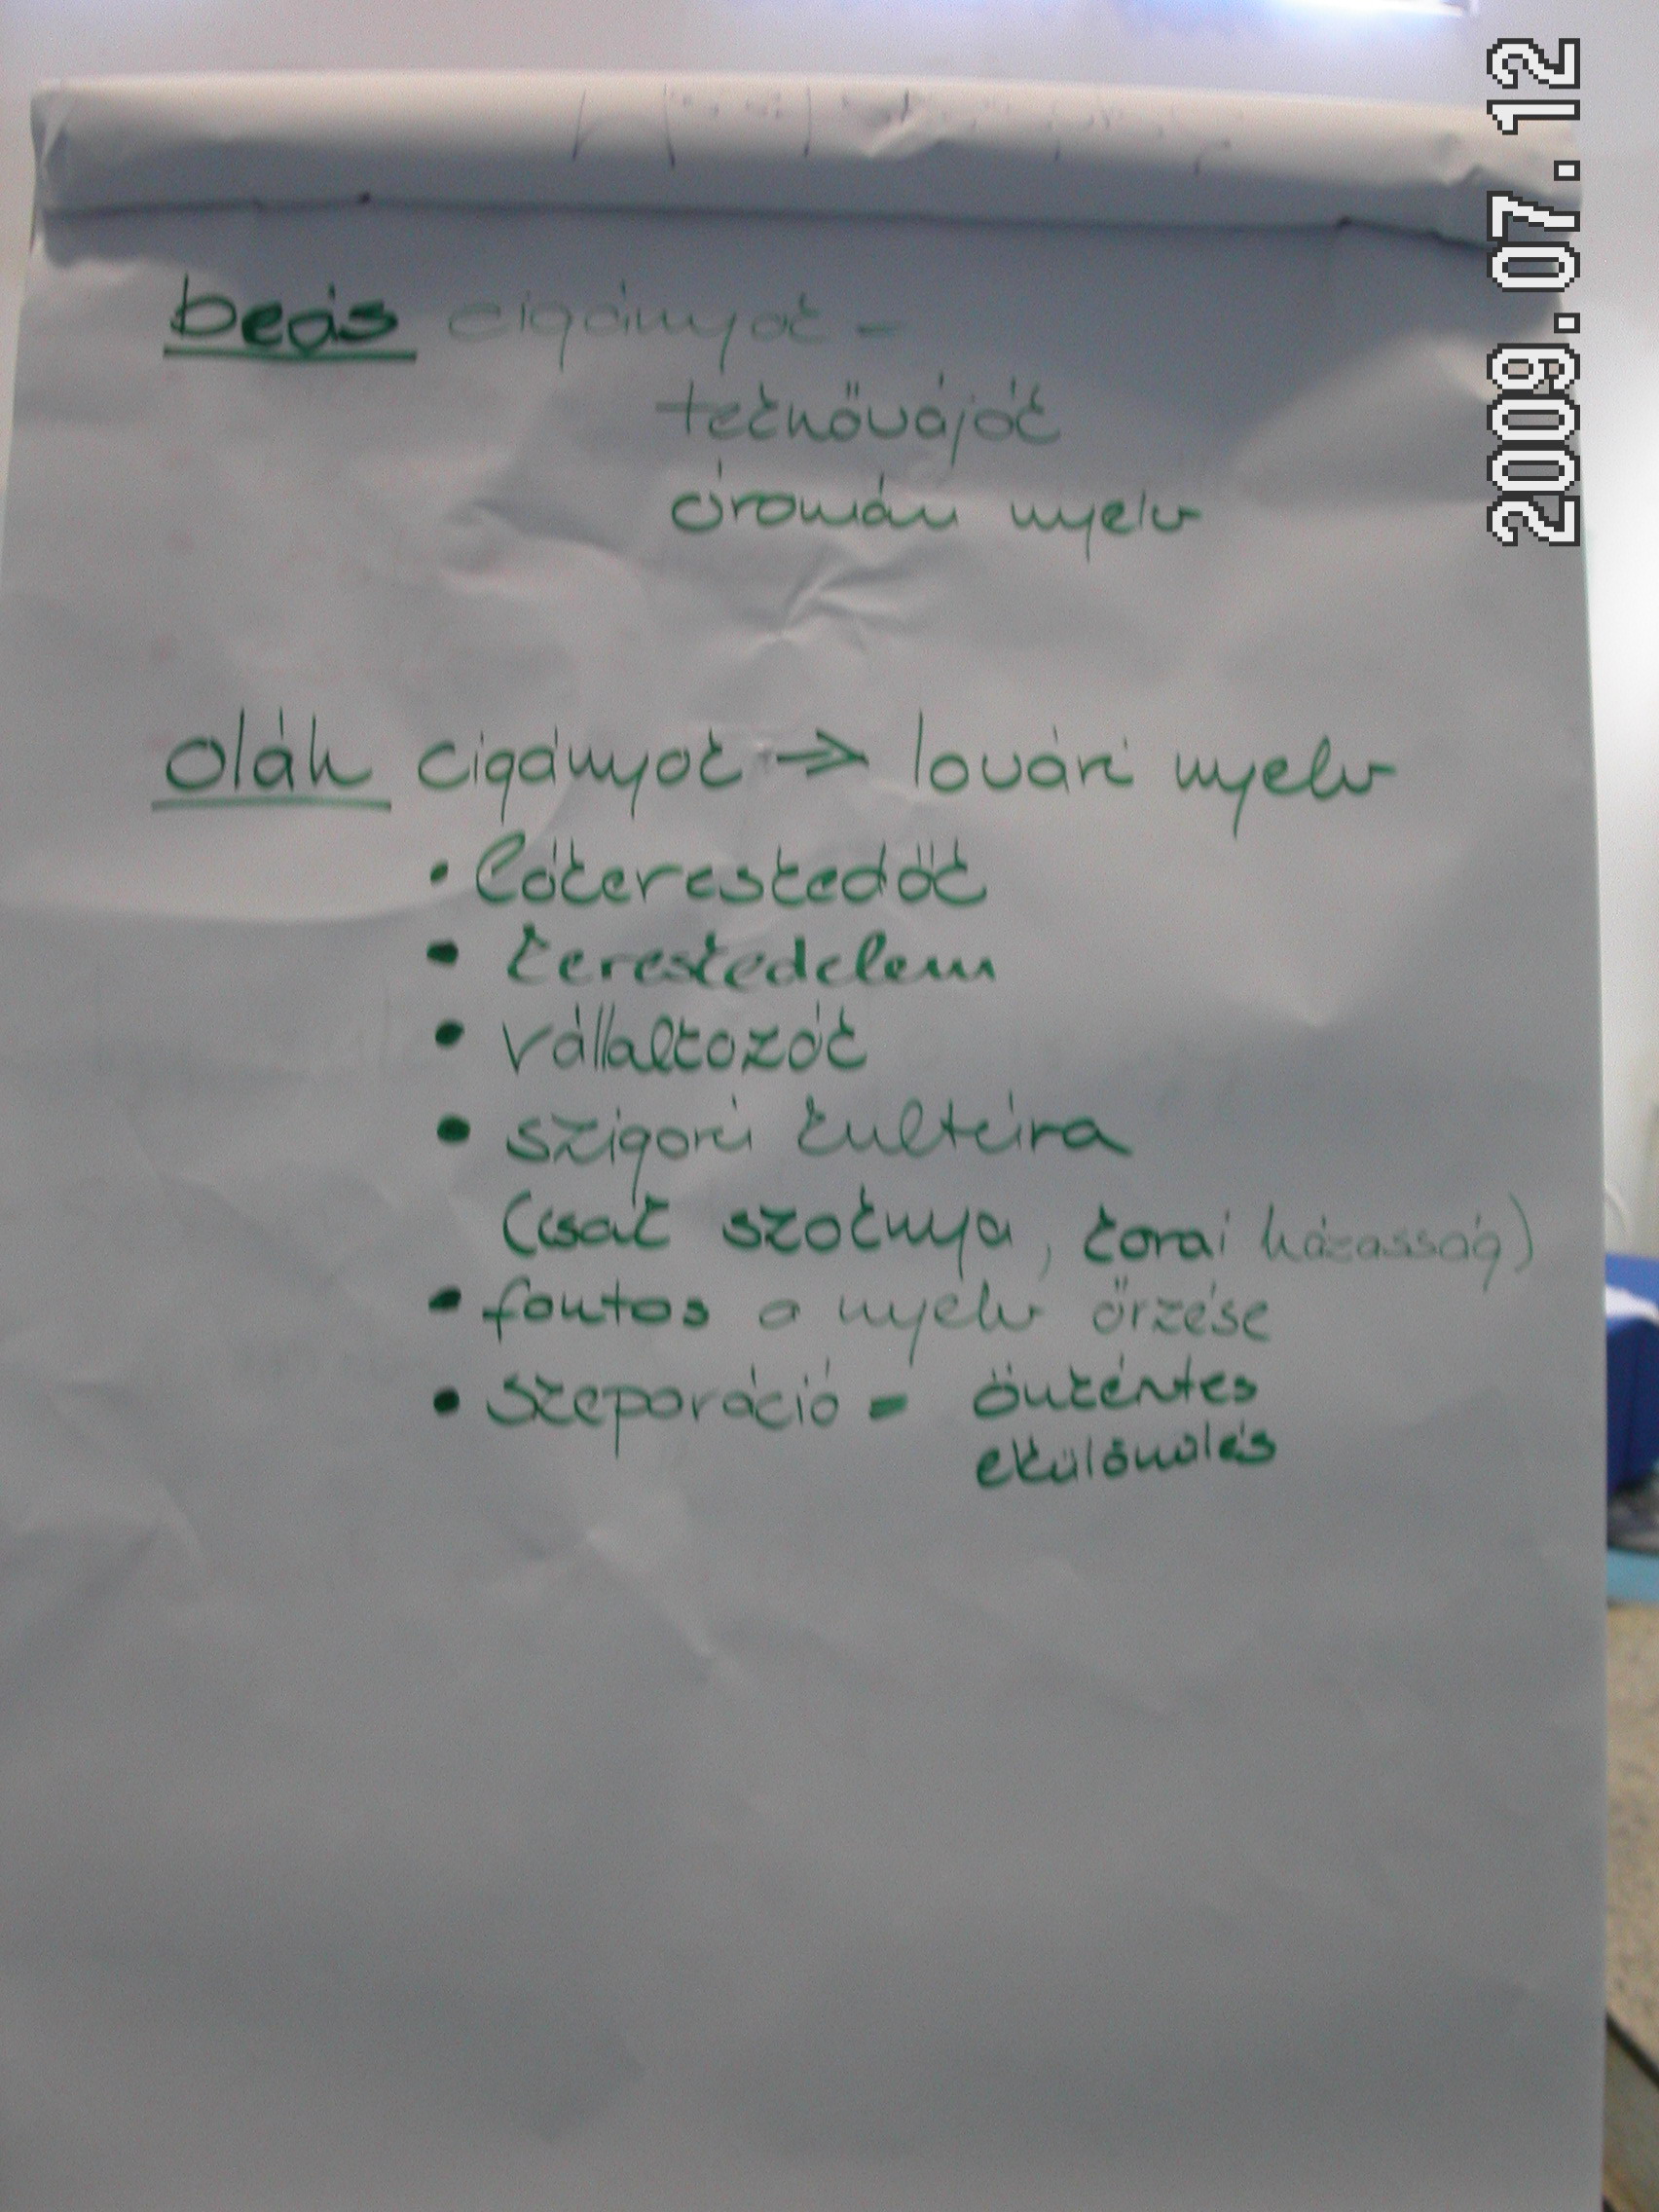 beás cigányok -
teknővájók
óromán nyelv
oláh cigányok → lovári nyelv
• lókereskedők
• kereskedelem
• vállalkozók
• szigorú kultúra
(csak szoknya, korai házasság)
• fontos a nyelv őrzése
• szeparáció = önkéntes
elkülönülés
2009.07.12